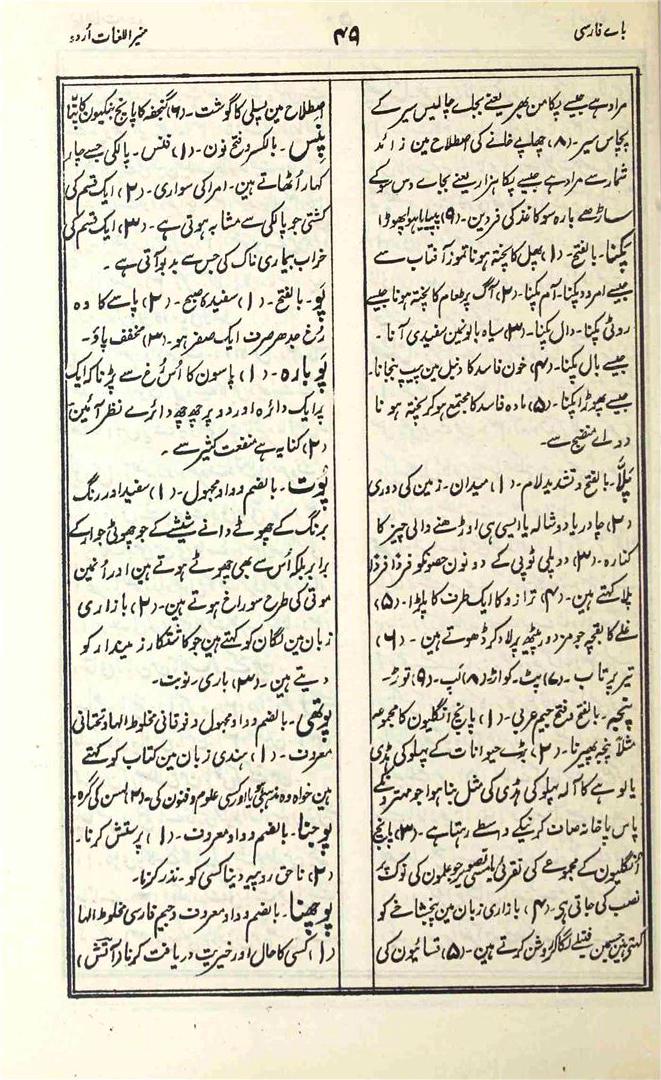 باے فارسی
۴۹
منیر اللغات اُردو
مراد ہے جیسے پکا من بھر یعنے بجاے چالیس سیر کے
پچاس سیر۔ (۸) چھاپے خانے کی اصطلاح مین زائد
شمار سے مراد ہے جیسے پکا ہزار یعنے بجاے دس سو کے
ساڑھے بارہ سو کاغذ کی فردین۔ (۹) پیپایا ہوا پھوڑا
پکنا۔ بالفتح۔ (۱) پھل کا پختہ ہونا تموز آفتاب سے
جیسے امرود پکنا۔ آم پکنا۔ (۲) آگ پر طعام کا پختہ ہونا جیسے
روٹی پکنا۔ دال پکنا۔ (۳) سیاہ بالونین سفیدی آنا۔
جیسے بال پکنا۔ (۴) خون فاسد کا دنبل مین پیپ بنجانا۔
جیسے پھوڑا پکنا۔ (۵) مادہ فاسد کا مجتمع ہو کر پختہ ہونا
دواے منضج سے۔
پلّا۔ بالفتح و تشدید لام۔ (۱) میدان۔ زمین کی دوری
(۲) چادر یا دوشالہ یا ایسی ہی اوڑھنے والی چیز کا
کنارہ۔ (۳) دو پلی ٹوپی کے دونون حصونکو فرداً فرداً
پلا کہتے ہین۔ (۴) ترازو کا ایک طرف کا پلڑا۔ (۵)
غلے کا بقچہ جو مزدور پیٹھ پر لاد کر ڈھوتے ہین۔ (۶)
تیر پرتاب۔ (۷) پٹ۔ کواڑ (۸) لب۔ (۹) توڑ۔
پنجہ۔ بالفتح و فتح جیم عربی۔ (۱) پانچ انگلیون کا مجموعہ
مثلاً پنجہ پھیرنا۔ (۲) بڑے حیوانات کے پہلو کی ہڈی
یا لوہے کا آلہ پہلو کی ہڈی کی مثل بنا ہوا جو مہتر ونکے
پاس پاخانہ صاف کرنیکے واسطے رہتا ہے۔ (۳) پانچ
انگلیون کے مجموعے کی نقرئی یا مسی تصویر جو علمون کی نوک پر
نصب کی جاتی ہی۔ (۴) بازاری زبان مین پنچشاخے کو
کہتے ہین جسمین فتیلے لگا کر روشن کرتے ہین۔ (۵) قسائیون کی
اصطلاح مین پسلی کا گوشت۔ (۶) گنجفہ کا پانچ بندکیون کا پتّا
پنس۔ بالکسر و فتح نون۔ (۱) فنس۔ پالکی جسے چار
کہار اُٹھاتے ہین۔ امرا کی سواری۔ (۲) ایک قسم کی
کشتی جو پالکی سے مشابہ ہوتی ہے۔ (۳) ایک قسم کی
خراب بیماری ناک کی جس سے بدبو آتی ہے۔
پَو۔ بالفتح۔ (۱) سفیدۂ صبح۔ (۲) پاسے کا وہ
رُخ جدھر صرف ایک صفر ہو۔ (۳) مخفف پاؤ۔
پَو بارہ۔ (۱) پاسون کا اُس رُخ سے پڑنا کہ ایک
پر ایک دائرہ اور دو پر چھ چھ دائرے نظر آئین
(۲) کنایہ ہے منفعت کثیر سے۔
پوت۔ بالضم و واو مجہول۔ (۱) سفید اور رنگ
برنگ کے چھوٹے دانے شیشے کے جو چھوٹی جوار کے
برابر بلکہ اُس سے بھی چھوٹے ہوتے ہین اور اُنمین
موتی کی طرح سوراخ ہوتے ہین۔ (۲) بازاری
زبان مین لگان کو کہتے ہین جو کاشتکار زمیندار کو
دیتے ہین۔ (۳) باری۔ نوبت۔
پوتھی۔ بالضم و واو مجہول و فوقانی مخلوط الہا و تحتانی
معروف۔ (۱) ہندی زبان مین کتاب کو کہتے
ہین خواہ وہ مذہبی ہو یا اور کسی علوم و فنون کی۔ (۲) لہسن کی گرہ۔
پوجنا۔ بالضم و واو معروف۔ (۱) پرستش کرنا۔
(۲) ناحق روپیہ دینا کسی کو۔ نذر کرنا۔
پوچھنا۔ بالضم و واو معروف و جیم فارسی مخلوط الہا
(۱) کسی کا حال اور خیریت دریافت کرنا (آتش)